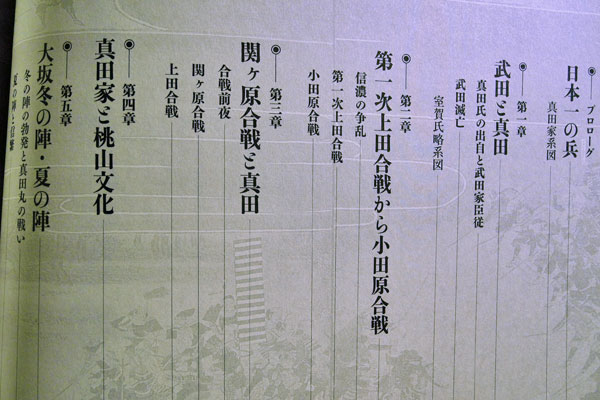 プロローグ
日本一の兵
真田家系図
第一章
武田と真田
真田氏の出自と武田家臣従
武田滅亡
室賀氏略系図
第二章
第一次上田合戦から小田原合戦
信濃の争乱
第一次上田合戦
小田原合戦
第三章
関ヶ原合戦と真田
合戦前夜
関ヶ原合戦
上田合戦
第四章
真田家と桃山文化
第五章
大坂冬の陣・夏の陣
冬の陣の勃発と真田丸の戦い
夏の陣と信繁